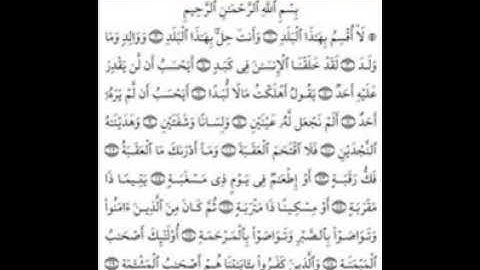 بِسْمِ ٱللَّهِ ٱلرَّحْمَـٰنِ ٱلرَّحِيمِ
لَآ أُقْسِمُ بِهَـٰذَا ٱلْبَلَدِ ۝ وَأَنتَ حِلٌّۢ بِهَـٰذَا ٱلْبَلَدِ ۝ وَوَالِدٍ وَمَا
وَلَدَ ۝ لَقَدْ خَلَقْنَا ٱلْإِنسَـٰنَ فِى كَبَدٍ ۝ أَيَحْسَبُ أَن لَّن يَقْدِرَ
عَلَيْهِ أَحَدٌ ۝ يَقُولُ أَهْلَكْتُ مَالًا لُّبَدًا ۝ أَيَحْسَبُ أَن لَّمْ يَرَهُۥٓ
أَحَدٌ ۝ أَلَمْ نَجْعَل لَّهُۥ عَيْنَيْنِ ۝ وَلِسَانًا وَشَفَتَيْنِ ۝ وَهَدَيْنَـٰهُ
ٱلنَّجْدَيْنِ ۝ فَلَا ٱقْتَحَمَ ٱلْعَقَبَةَ ۝ وَمَآ أَدْرَىٰكَ مَا ٱلْعَقَبَةُ ۝
فَكُّ رَقَبَةٍ ۝ أَوْ إِطْعَـٰمٌ فِى يَوْمٍ ذِى مَسْغَبَةٍ ۝ يَتِيمًا ذَا
مَقْرَبَةٍ ۝ أَوْ مِسْكِينًا ذَا مَتْرَبَةٍ ۝ ثُمَّ كَانَ مِنَ ٱلَّذِينَ ءَامَنُوا۟
وَتَوَاصَوْا۟ بِٱلصَّبْرِ وَتَوَاصَوْا۟ بِٱلْمَرْحَمَةِ ۝ أُو۟لَـٰٓئِكَ أَصْحَـٰبُ
ٱلْمَيْمَنَةِ ۝ وَٱلَّذِينَ كَفَرُوا۟ بِـَٔايَـٰتِنَا هُمْ أَصْحَـٰبُ ٱلْمَشْـَٔمَةِ ۝